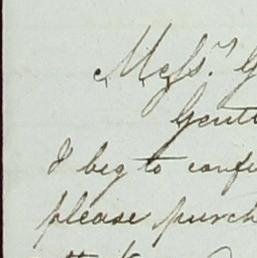 Messrs. G
Gentl
I beg to confi
please purch